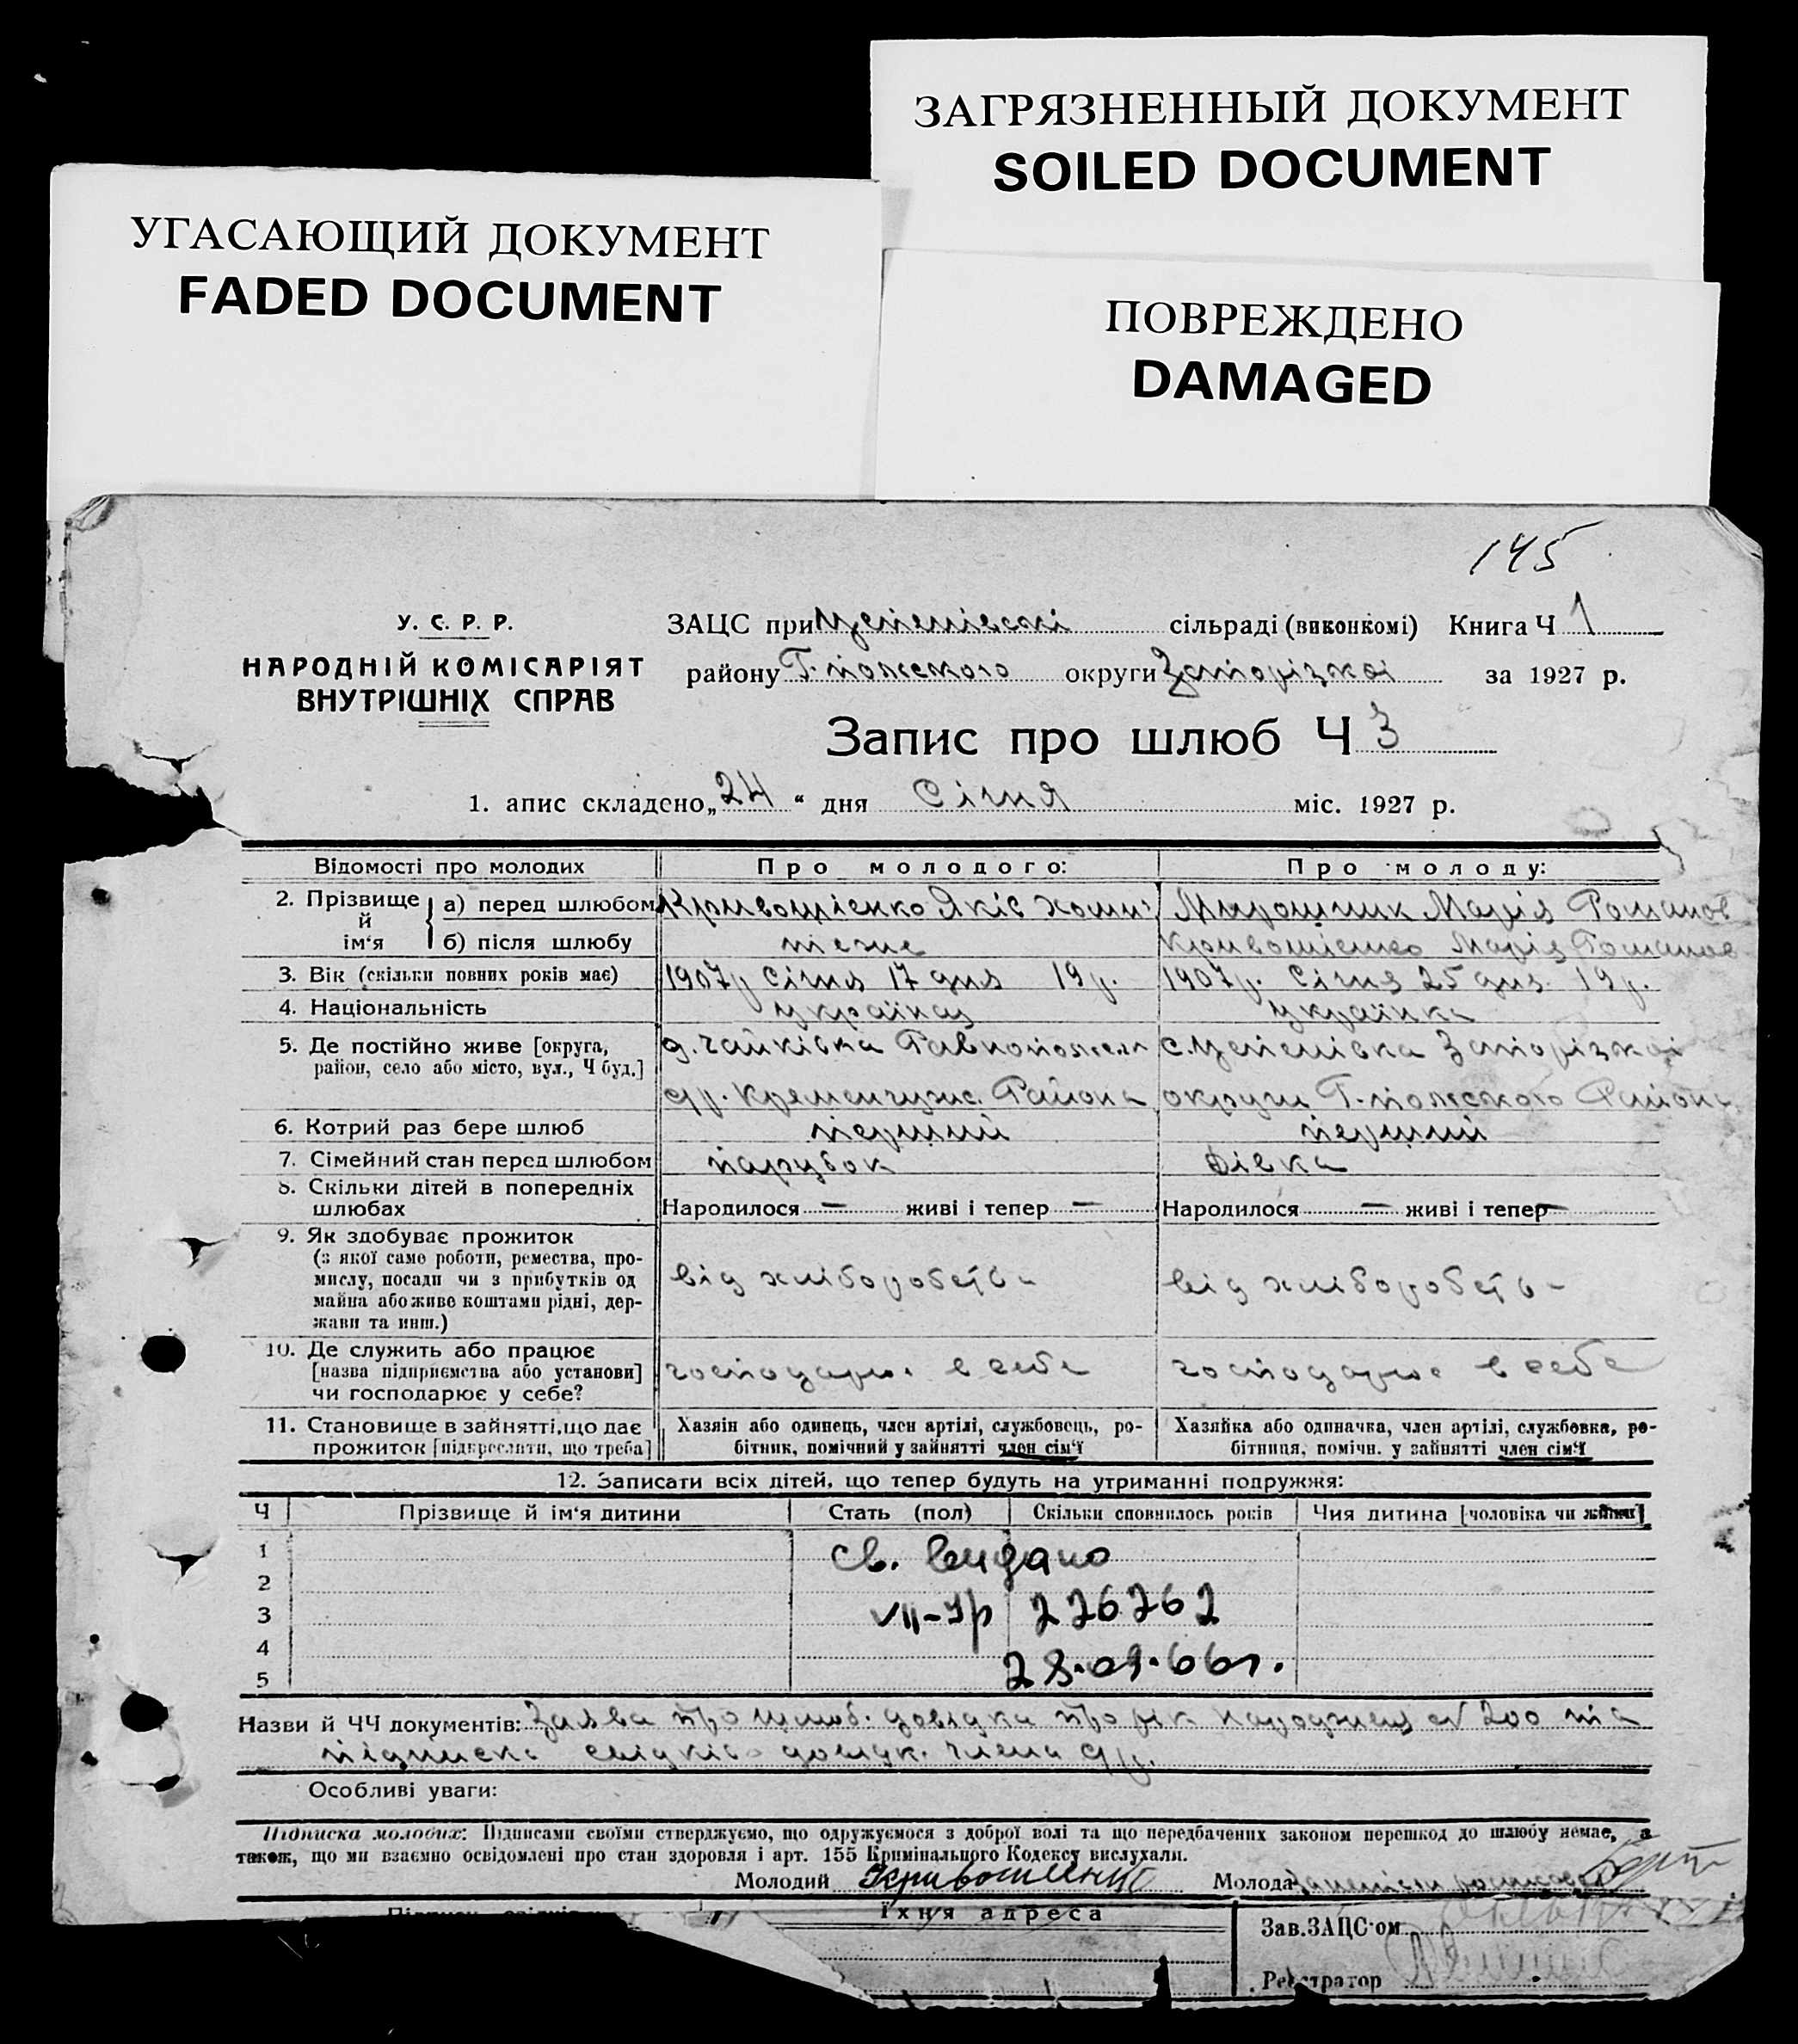 ЗАГРЯЗНЕННЫЙ ДОКУМЕНТ
SOILED DOCUMENT
УГАСАЮЩИЙ ДОКУМЕНТ
FADED DOCUMENT
ПОВРЕЖДЕНО
DAMAGED
145
У. С. Р. Р.
НАРОДНІЙ КОМІСАРІЯТ
ВНУТРІШНІХ СПРАВ
ЗАЦС при сільраді (виконкомі) Книга Ч 1
району Г.польського округи Запорізкої за 1927 р.
Запис про шлюб Ч 3
1. апис складено „24“ дня Січня міс. 1927 р.
Відомості про молодих Про молодого: Про молоду:
2. Прізвище й ім‘я
а) перед шлюбом Кривошіенко Якіс Хоми Мирошник Марія Романов
б) після шлюбу теже Кривошіенко Марія Романов
3. Вік (скільки повних років має) 1907р Січня 17 дня 19р. 1907р. Січня 25 дня 19р.
4. Національність українец українка
5. Де постійно живе [округа, район, село або місто, вул., Ч буд.]
д. Чайківка с. Запорізкої
Кременчужс. Района округи Г.польского Района
6. Котрий раз бере шлюб перший перший
7. Сімейний стан перед шлюбом парубок дівка
8. Скільки дітей в попередніх шлюбах Народилося — живі і тепер — Народилося — живі і тепер —
9. Як здобуває прожиток
(з якої саме роботи, ремества, про-
мислу, посади чи з прибутків од
майна або живе коштами рідні, дер-
жави та инш.)
від хліборобств від хліборобств
10. Де служить або працює
[назва підприємства або установи]
чи господарює у себе?
господарює в себе господарює в себе
11. Становище в зайнятті, що дає
прожиток [підкреслити, що треба]
Хазяїн або одинець, член артілі, службовець, ро-
бітник, помічний у зайнятті член сім‘ї
Хазяйка або одиначка, член артілі, службовка, ро-
бітниця, помічн. у зайнятті член сім‘ї
12. Записати всіх дітей, що тепер будуть на утриманні подружжя:
Ч Прізвище й ім‘я дитини Стать (пол) Скільки сповнилось років Чия дитина [чоловіка чи жінки]
1 св. видано
2
3 VII-ЯР 226262
4
5 28.09.66г.
Назви й ЧЧ документів: Заява про шлюб. довідка про рік народження N 200 та
підписка свідків довідк. члена
Особливі уваги:
Підписка молодих: Підписами своїми стверджуємо, що одружуємося з доброї волі та що передбачених законом перешкод до шлюбу немає, а
також, що ми взаємно освідомлені про стан здоровля і арт. 155 Кримінального Кодексу вислухали.
Молодий Кривошіенко Молода
їхня адреса
Зав. ЗАЦС‘ом
Реєстратор